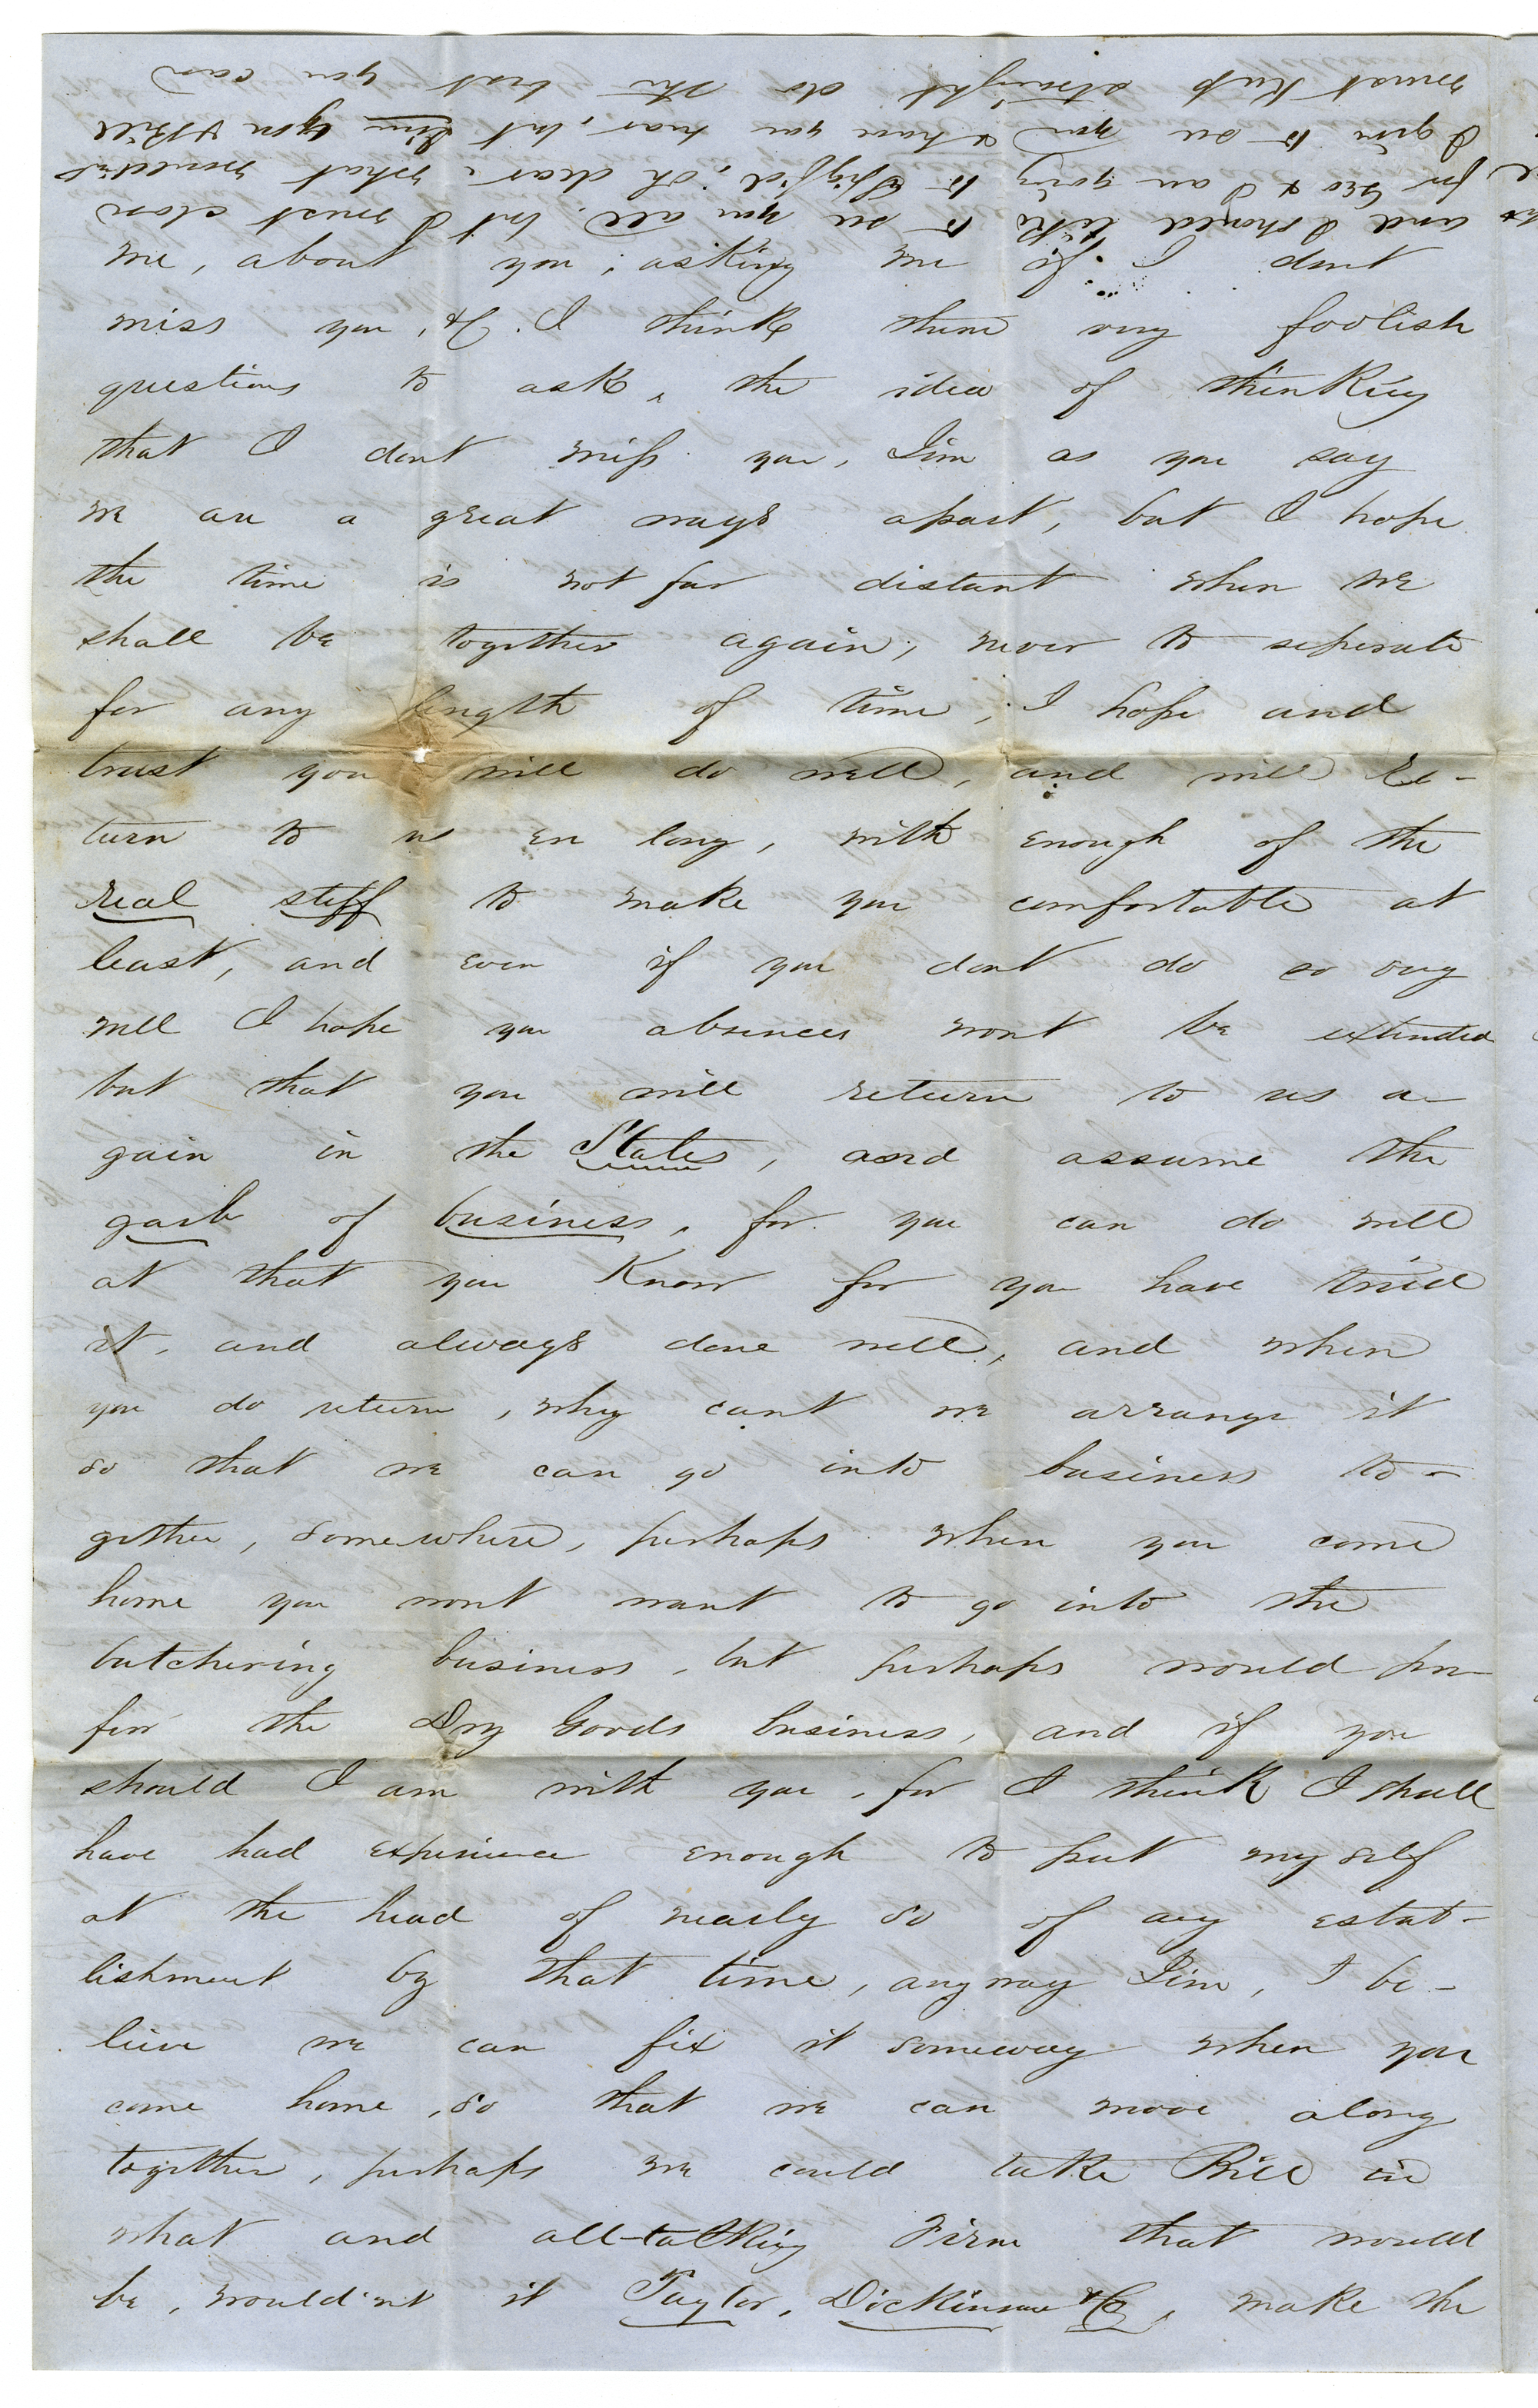 and I should like to see you all, but I must close
for Geo & I am going to Spgf'd, Oh dear what wouldent
I give to see you & have you near, but Jim you & Bill
must keep straight do the best you can
me, about you, asking me if I dont
miss you, &c. I think them very foolish
questions to ask, the idea of thinking
that I dont miss you, Jim as you say
we are a great ways apart, but I hope
the time is not far distant when we
shall be together again, never to seperate
for any length of time, I hope and
trust you will do well, and will re-
turn to us ere long, with enough of the
real stuff to make you comfortable at
least, and even if you dont do so very
well I hope you absences wont be extended
but that you will return to us a-
gain in the States, and assume the
garb of business, for you can do well
at that you know for you have tried
it, and always done well, and when
you do return, why cant we arrange it
so that we can go into business to-
gether, somewhere, perhaps when you come
home you wont want to go into the
butchering business, but perhaps would pre-
fer the Dry Goods business, and if you
should I am with you, for I think I shall
have had experience enough to put myself
at the head of nearly so of any estab-
lishment by that time, anyway Jim, I be-
lieve we can fix it someway when you
come home, so that we can move along
together, perhaps we could take Bill in
what and all-talking Firm that would
be, would'nt it Taylor, Dickinson & Co, make the